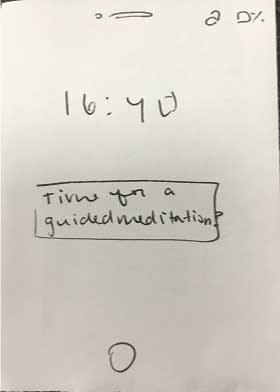 16:40
Time for a
guided meditation?